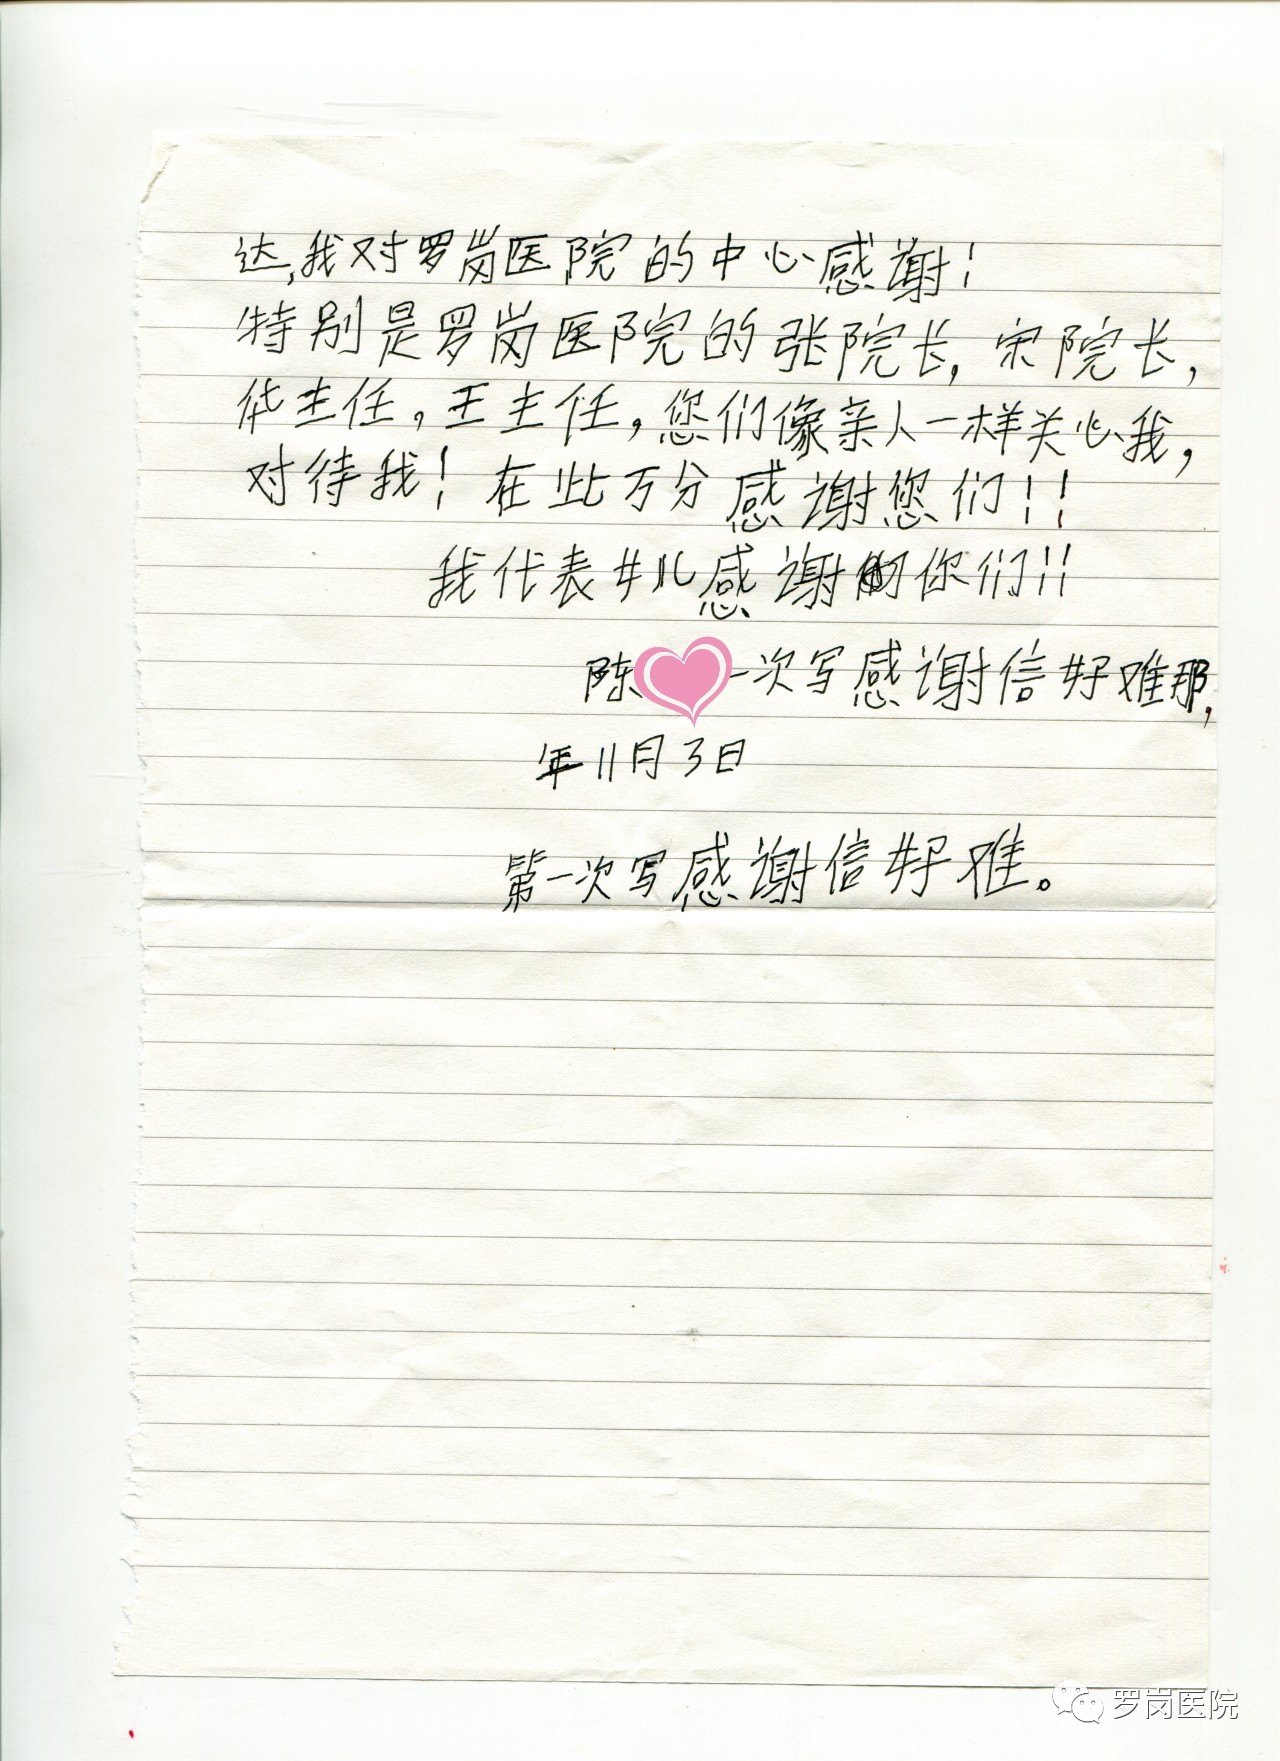 达,我对罗岗医院的中心感谢!
特别是罗岗医院的张院长,宋院长,
华主任,王主任,您们像亲人一样关心我,
对待我!在此万分感谢您们!!
我代表女儿感谢你们!!
陈 一次写感谢信好难那,
年11月3日
第一次写感谢信好难。
罗岗医院